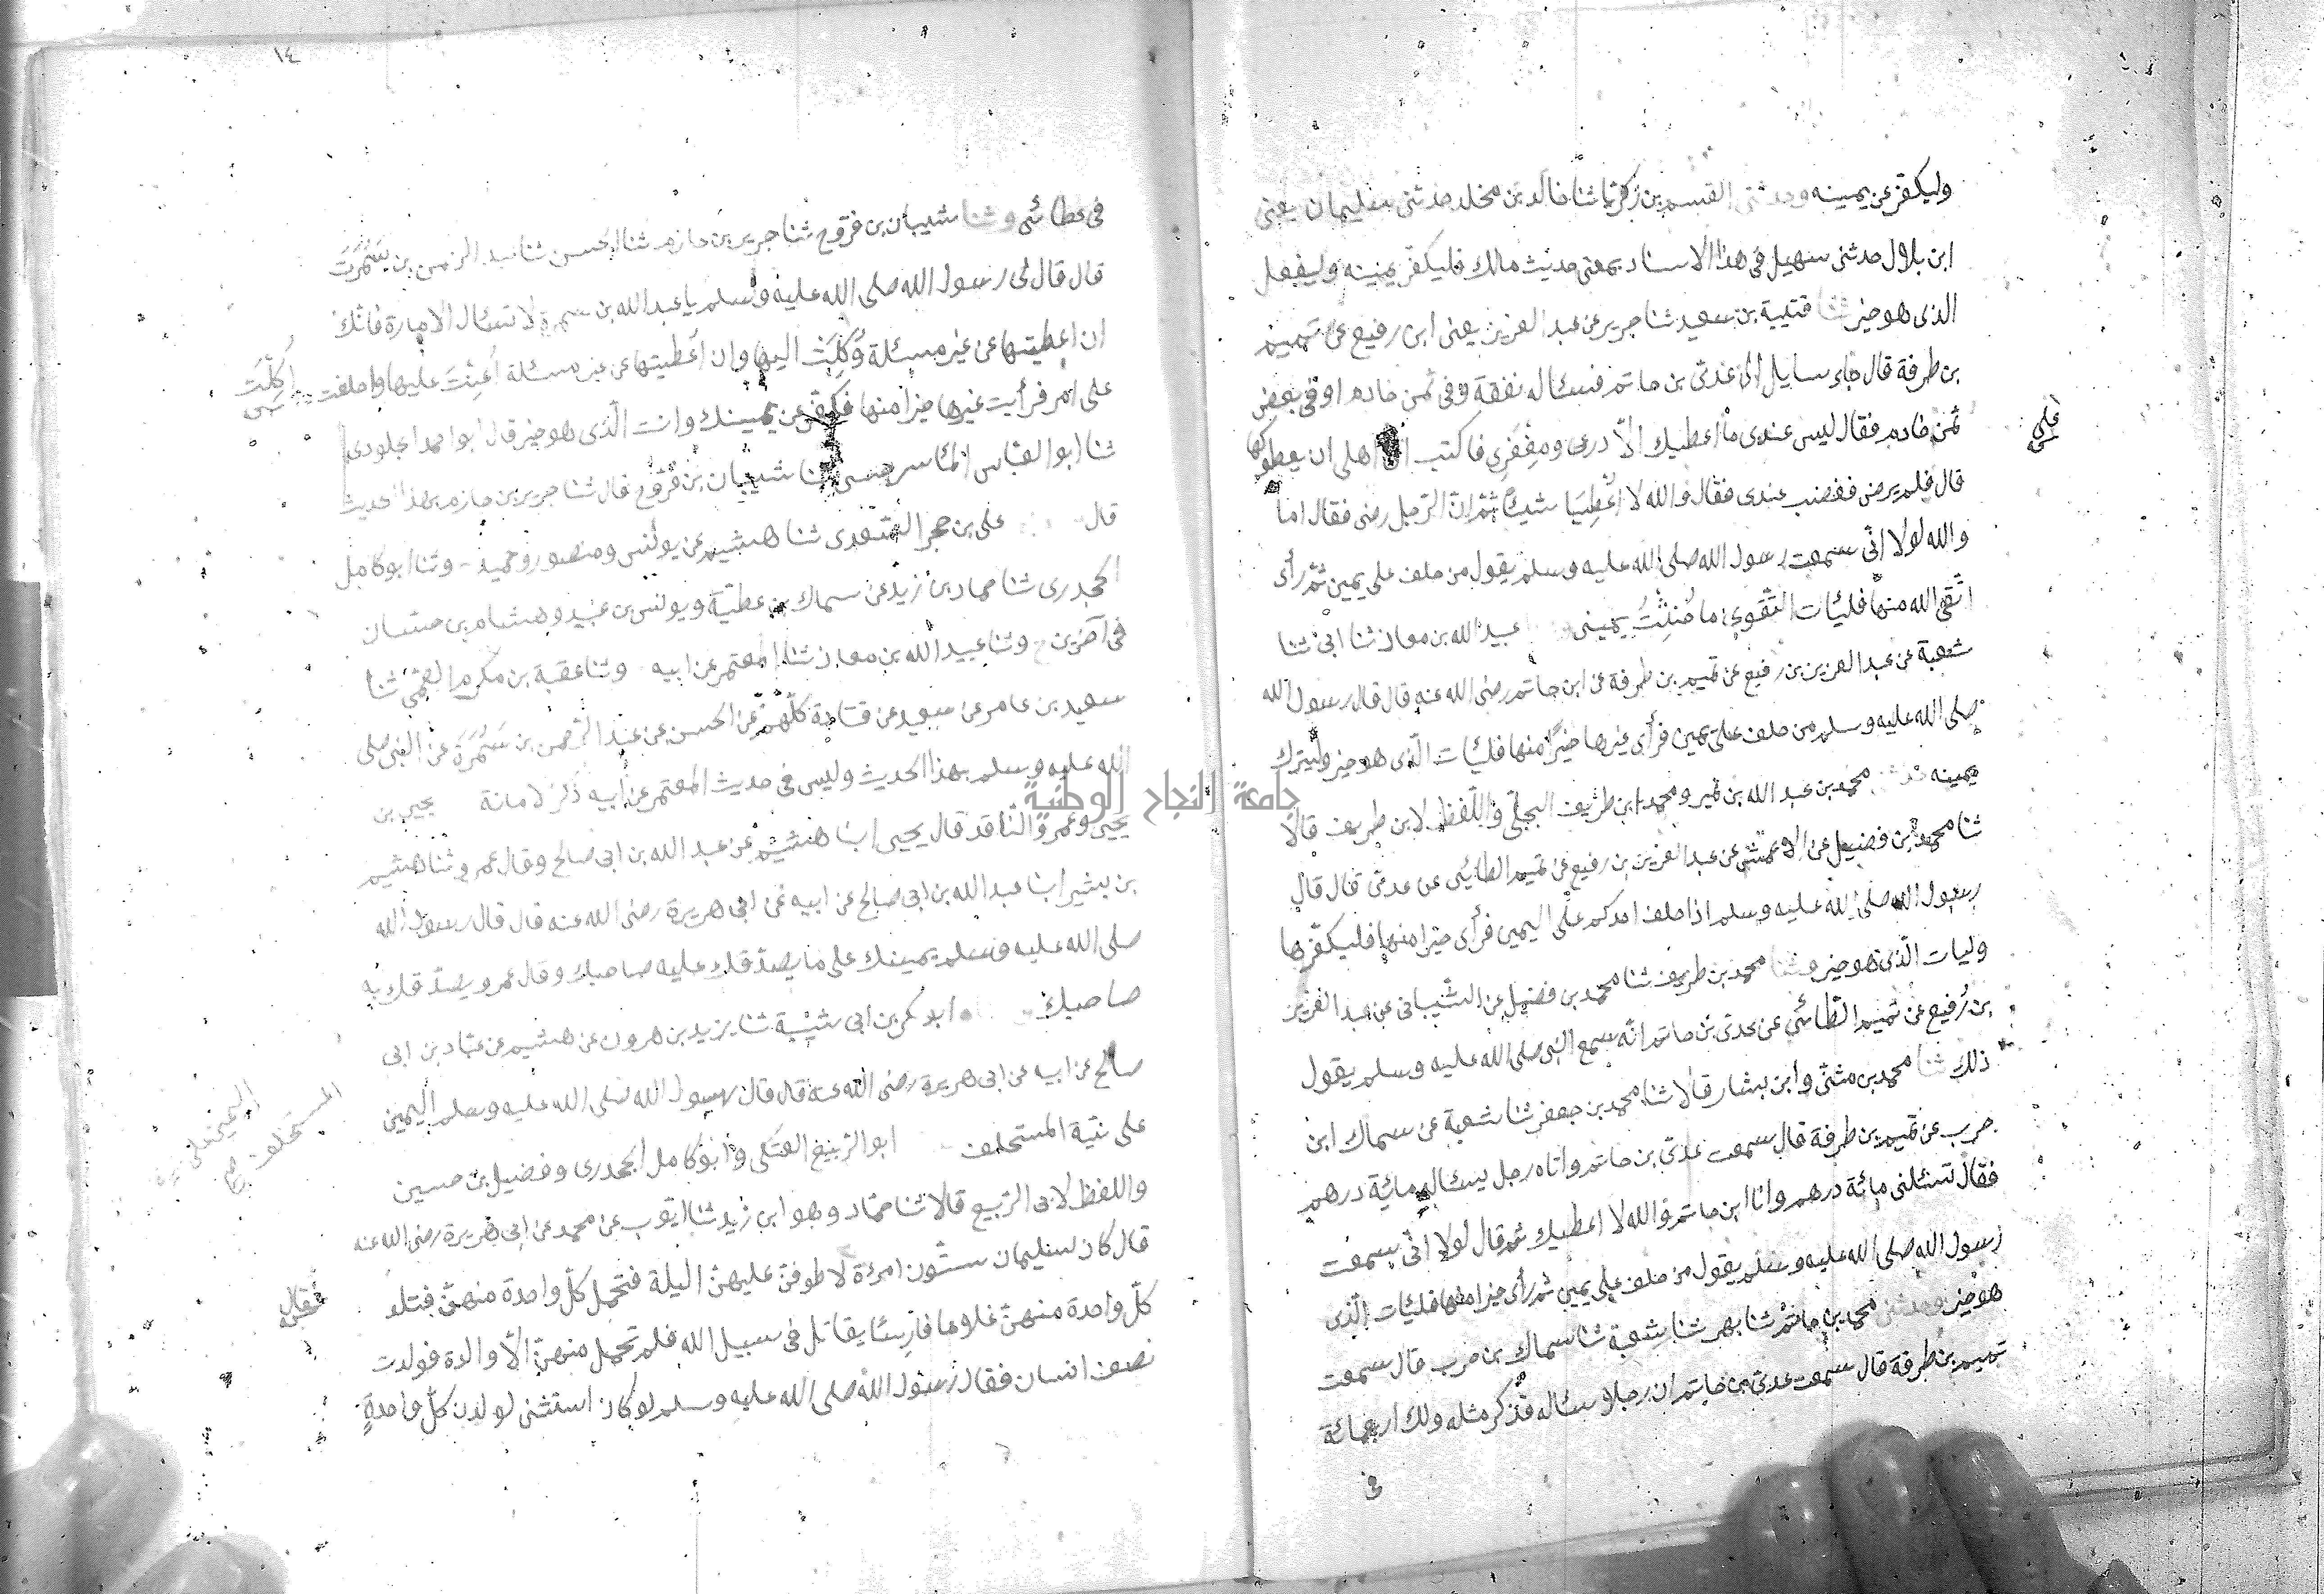 وليكفر عن يمينه وحدثنى القسم بن زكريا ثنا خالد بن مخلد حدثنى سليمان يعنى
ابن بلال حدثنى سهيل فى هذا الاسناد بمعنى حديث مالك فليكفر يمينه وليفعل
الذى هو خير ثنا قتيبة بن سعيد ثنا جرير عن عبد العزيز يعنى ابن رفيع عن تميم
بن طرفة قال جاء سايل الى عدى بن حاتم فسئاله نفقة وفى ثمن خادم او فى بعض
ثمن خادم فقال ليس عندى ما اعطيك الّا درعى ومغفرى فاكتب الى اهلى ان يعطوكها
على
قال فلم يرض فغضب عدى فقال والله لا اعطيك شيئا ثم ان الرجل رضى فقال اما
والله لولا انى سمعت رسول الله صلى الله عليه وسلم يقول من حلف على يمين ثم رأى
اتقى الله منها فليات التقوى ما حنثت يمينى عبيد الله بن معاذ ثنا ابى ثنا
شعبة عن عبد العزيز بن رفيع عن تميم بن طرفة عن ابن حاتم رضى الله عنه قال قال رسول الله
صلى الله عليه وسلم من حلف على يمين فرأى غيرها خيرًا منها فليات الّذى هو خير وليترك
يمينه محمد بن عبد الله بن نمير ومحمد ابن طريف البجلى واللفظ لابن طريف قالا
ثنا محمد بن فضيل عن الاعمش عن عبد العزيز بن رفيع عن تميم الطائى عن عدى قال قال
رسول الله صلى الله عليه وسلم اذا حلف احدكم على اليمين فرأى خيرا منها فليكفرها
وليات الّذى هو خير وثنا محمد بن طريف ثنا محمد بن فضيل عن الشيبانى عن عبد العزيز
بن رُفيع عن تميم الطائى عن عدى بن حاتم انه سمع النبى صلى الله عليه وسلم يقول
ذلك ثنا محمد بن مثنى وابن بشار قالا ثنا محمد بن جعفر ثنا شعبة عن سماك ابن
حرب عن تميم بن طرفة قال سمعت عدى بن حاتم واتاه رجل يسئاله مائة درهم
فقال تسئلنى مائة درهم وانا ابن حاتم والله لا اعطيك ثم قال لولا انى سمعت
رسول الله صلى الله عليه وسلم يقول من حلف على يمين ثم رأى خيرا منها فليات الّذى
هو خير وحدثنى محمد بن حاتم ثنا بهز ثنا شعبة ثنا سماك بن حرب قال سمعت
تميم بن طرفة قال سمعت عدى بن حاتم ان رجلا سئاله فذكر مثله ولك اربعمائة
فى
١٤
فى عطائى وثنا شيبان بن فروخ ثنا جرير بن حازم ثنا الحسن ثنا عبد الرحمن بن سَمُرَت
قال قال لى رسول الله صلى الله عليه وسلم يا عبد الله بن سمرة لا تسئال الامارة فانك
ان اعطيتها عن غير مسئلة وُكِلت اليها وان اُعطيتها عن غير مسئلة اُعِنْتَ عليها واحلفت
اُكِلْتَ
على امر فرأيت غيرها خيرا منها فكفر عن يمينك وائت الّذى هو خير قال ابو احمد الجلودى
ثنا ابو العباس الماسرجسى ثنا شيبان بن فروخ قال ثنا جرير بن حازم بهذا الحديث
قال على بن حجر السعدى ثنا هشيم عن يونس ومنصور وحميد وثنا ابو كامل
الجحدرى ثنا حماد بن زيد عن سماك بن عطية ويونس بن عبيد وهشام بن حسان
فى آخرين ح وثنا عبيد الله بن معاذ ثنا المعتمر عن ابيه وثنا عقبة بن مكرم العمى ثنا
سعيد بن عامر عن سعيد عن قتادة كلّهم عن الحسن عن عبد الرحمن بن سَمُرَة عن النبى صلى
الله عليه وسلم بهذا الحديث وليس فى حديث المعتمر عن ابيه ذكر لامانة يحيى بن
يحيى وعمرو الناقد قال يحيى ابنا هشيم عن عبد الله بن ابى صالح وقال عمرو ثنا هشيم
بن بشير ابنا عبد الله بن ابى صالح عن ابيه عن ابى هريرة رضى الله عنه قال قال رسول الله
صلى الله عليه وسلم يمينك على ما يصدّقك عليه صاحبك وقال عمرو يصدّقك به
صاحبك ابو بكر بن ابى شيبة ثنا يزيد بن هرون عن هشيم عن عباد بن ابى
صالح عن ابيه عن ابى هريرة رضى الله عنه قال قال رسول الله صلى الله عليه وسلم اليمين
على نية المستحلف ابو الربيع العتكى وابو كامل الجحدرى وفضيل بن حسين
اليمين على نية
المستحلف
واللفظ لابى الربيع قالا ثنا حمّاد وهو ابن زيد ثنا ايوب عن محمد عن ابى هريرة رضى الله عنه
قال كان لسليمان ستّون امرءة لاطوفنّ عليهنّ اليلة فتحمل كلّ واحدة منهنّ فتلد
فقال
كلّ واحدة منهنّ غلاما فارسًا يقاتل فى سبيل الله فلم تحمل منهنّ الّا والدة فولدت
نصف انسان فقال رسول الله صلى الله عليه وسلم لو كان استثنى لولدن كلّ واحدةٍ
جامعة النجاح الوطنية